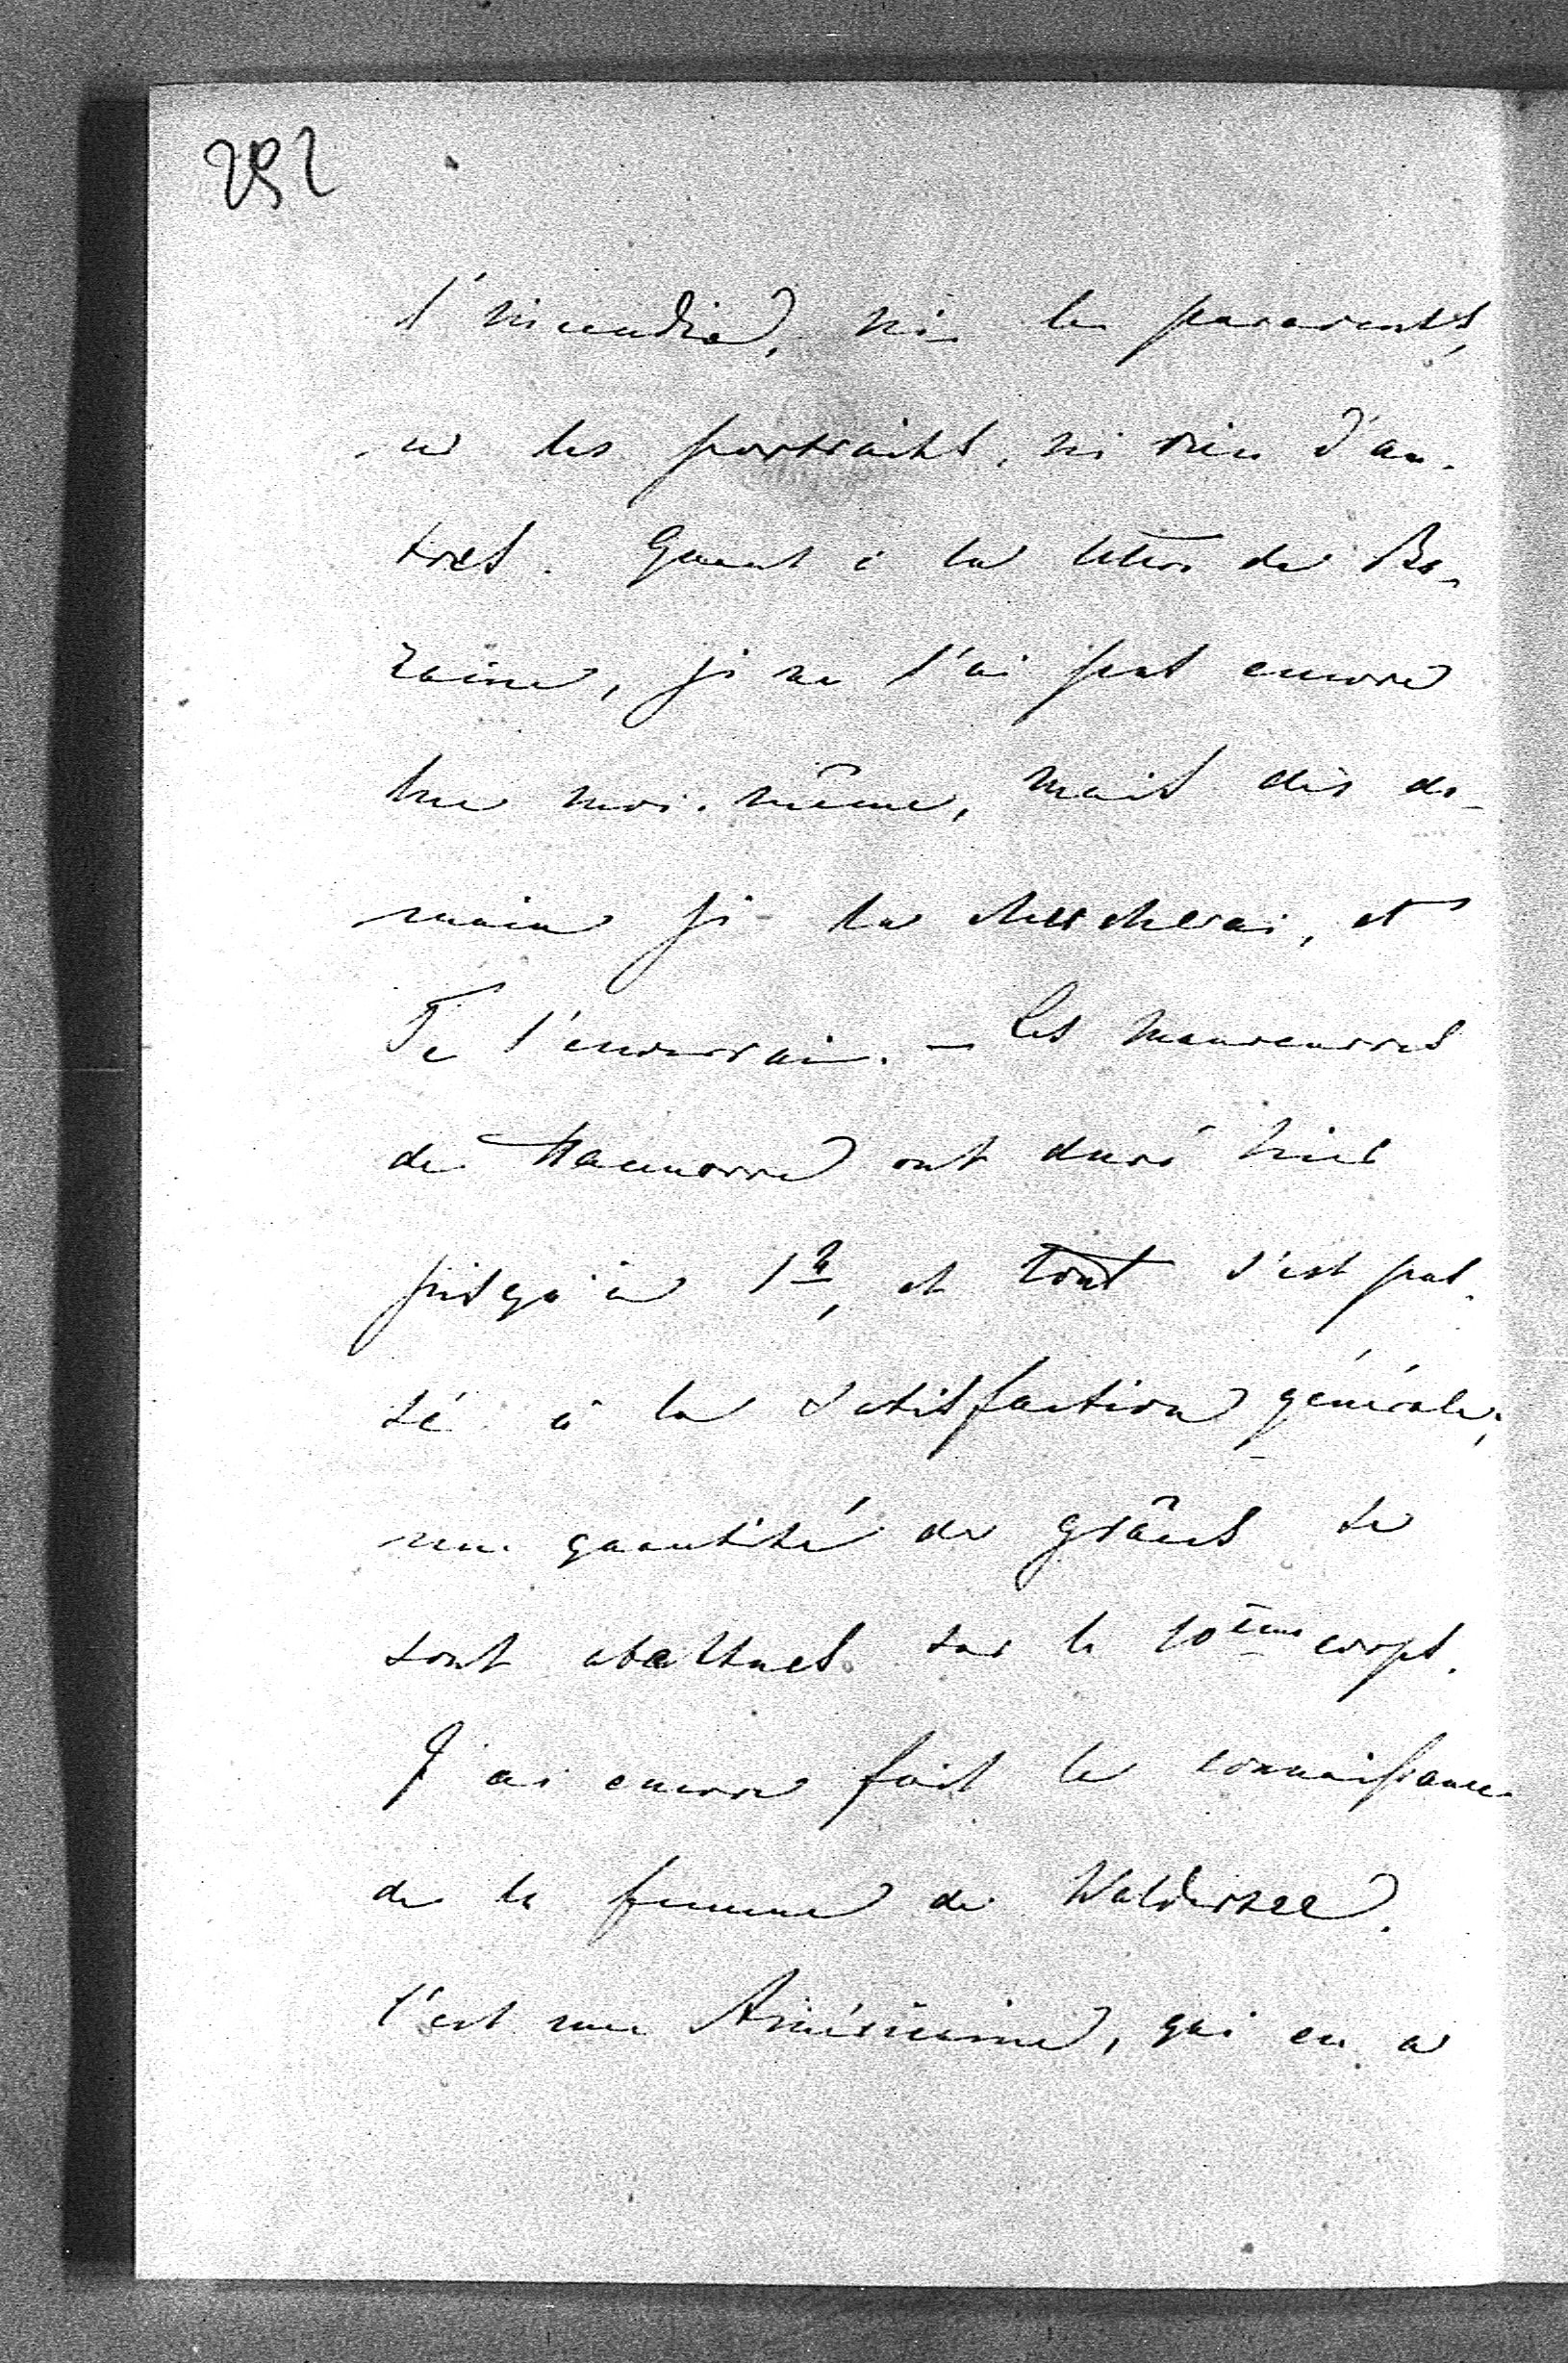 292
l'incendie, ni les paravents,
ni les portraits, ni rien d'au-
tres. Quant à la lettre de Ba-
zaine, je ne l'ai pas encore
lue moi-même, mais dès de-
main je la chercherai, et
Te l'enverrai. — Les manœuvres
de Hannovre ont duré hier
jusqu'à 1h, et tout s'est pas-
sé à la satisfaction générale;
une quantité de grâces se
sont abattues sur le 10ème corps.
J'ai encore fait la connaissance
de la femme de Waldersee.
C'est une Américaine, qui en a